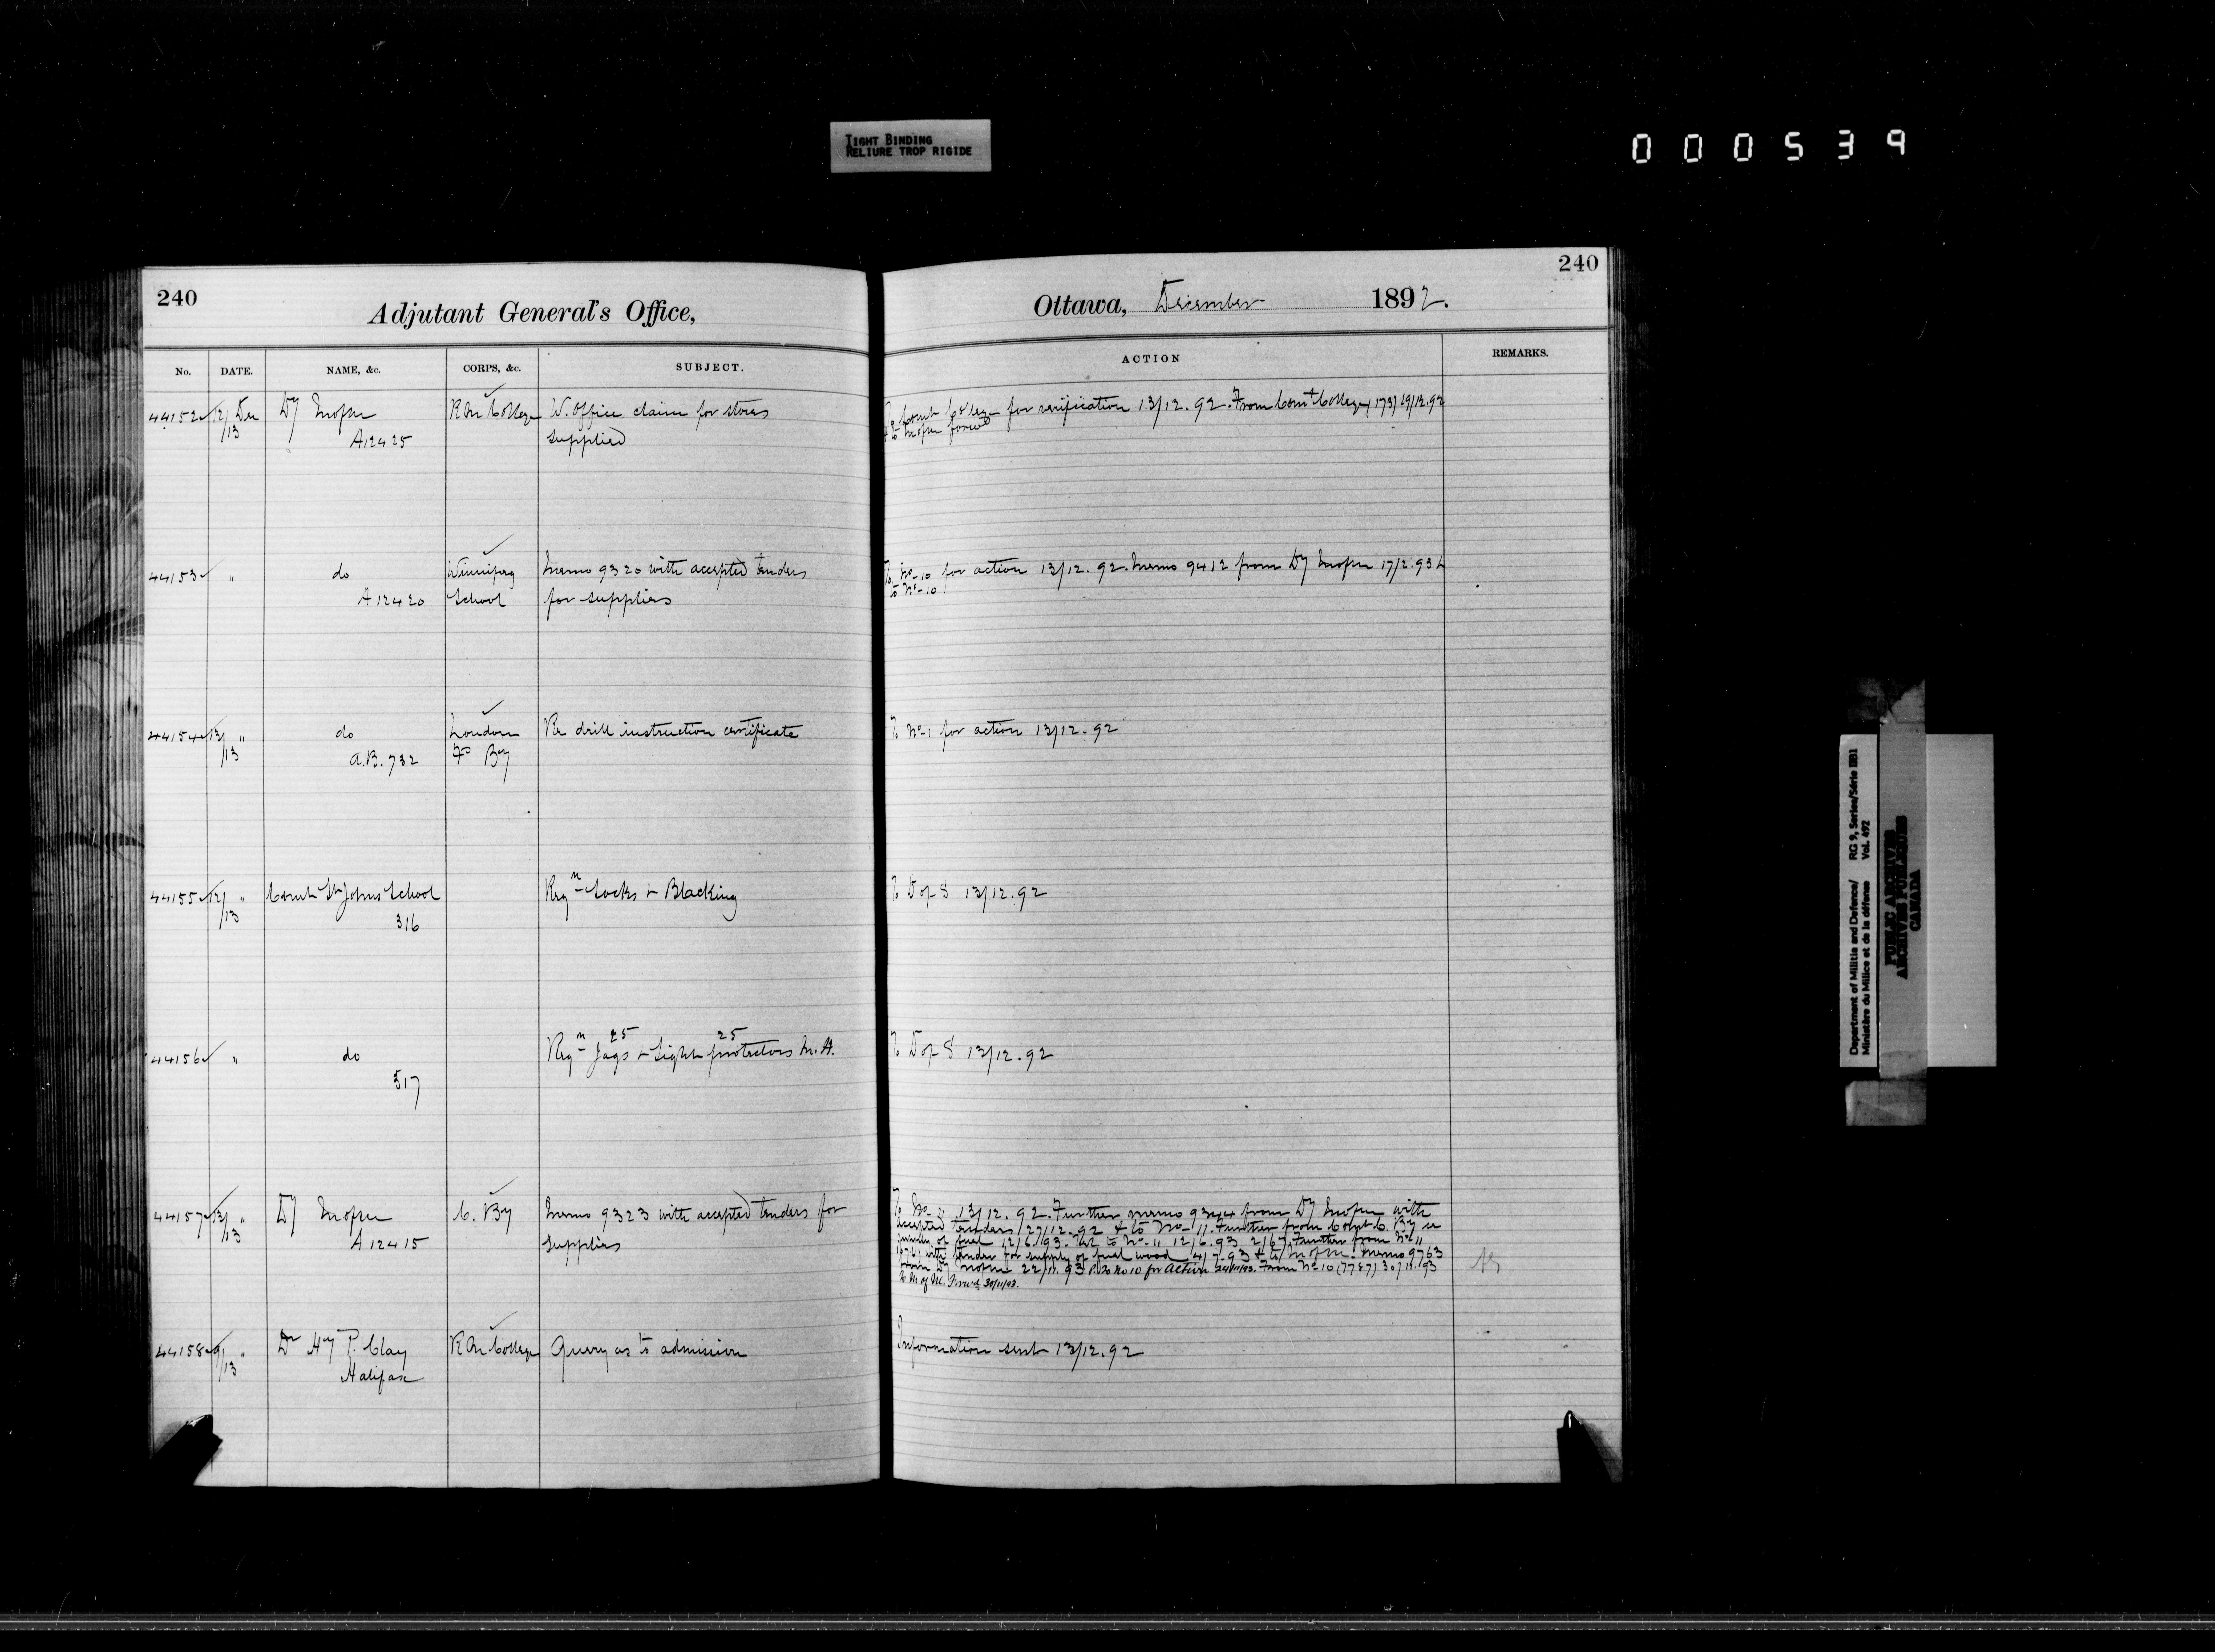 TIGHT BINDING
RELIURE TROP RIGIDE
000539
240
Adjutant General's Office,
No. DATE. NAME, &c. CORPS, &c. SUBJECT.
44152 12/13 Dec Dy M of M R M College W. Office claim for stores
A12425 supplied
44153 " do Winnipeg Memo 9320 with accepted tenders
A12420 School for supplies
44154 12/13 " do London Re drill instruction certificate
A.B. 732 Fd By
44155 12/13 " Comdt St Johns School Reqn Socks & Blacking
316
44156 " do Reqn 25 Jags & 25 Sight protectors M.H.
317
44157 12/13 " Dy M of M C. By Memo 9323 with accepted tenders for
A12415 supplies
44158 9/13 " Dr Hy P. Clay R M College Query as to admission
Halifax
240
Ottawa, December 1892.
ACTION REMARKS.
To Comdt College for verification 13/12.92. From Comdt College (173) 29/12.92
& to M of M forwd
To No-10 for action 13/12.92. Memo 9412 from Dy M of M 17/2.93 &
to No-10
To No-1 for action 13/12.92
To D of S 13/12.92
To D of S 13/12.92
To No-11 13/12.92. Further memo 9344 from Dy M of M with
accepted tenders 27/12.92 & to No-11. Further from Comdt C. By re
of fuel 12/6.93. to No-11 12/6.93 Further from No 11
with tender for supply of fuel wood 4/7.93 & to M of M. Memo 9763
from Dy M of M 22/11.93 to No 10 for Action From No 10 (7787) 30/11.93
To M of M. Forwd. 30/11/93.
Information sent 13/12.92
Department of Militia and Defence/ RG 9, Series/Série IIB1
Ministère du Milice et de la défense Vol. 492
PUBLIC ARCHIVES
ARCHIVES PUBLIQUES
CANADA